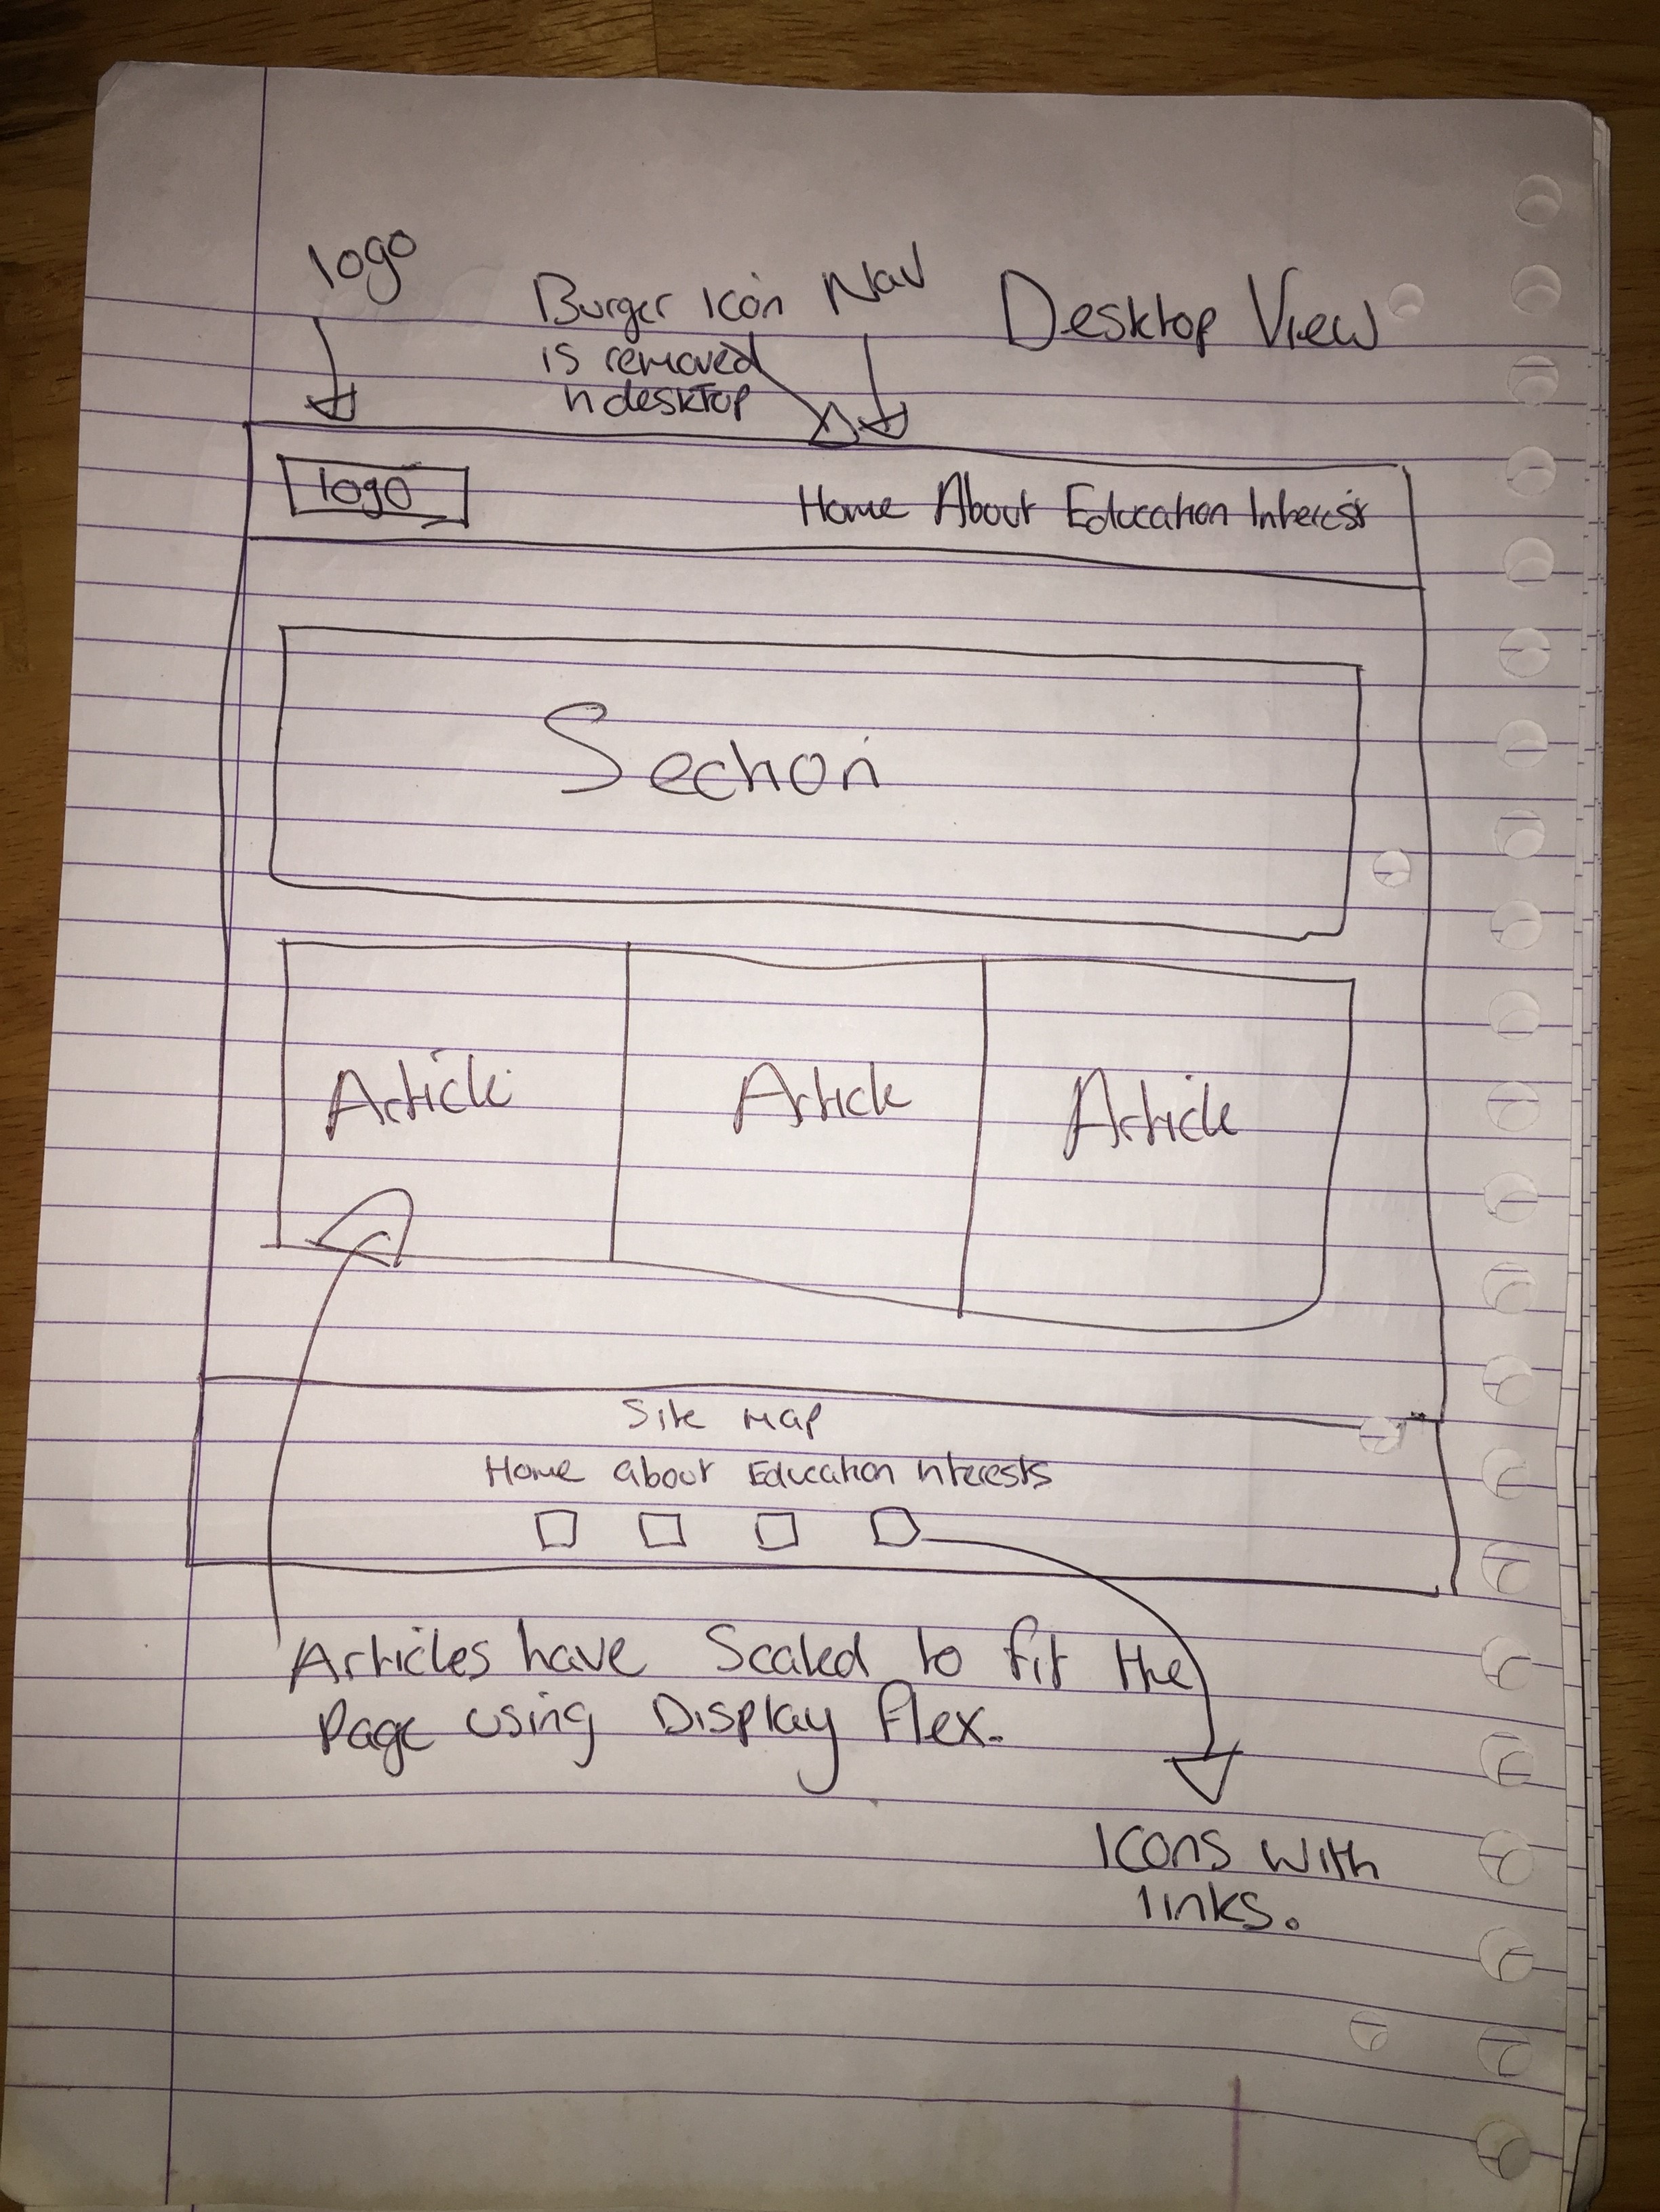 logo
Burger Icon Nav Desktop View
is removed
n desktop
logo
Home About Education Interest
Section
Article Article Article
Site Map
Home about Education interests
Articles have Scaled to fit the
Page using Display flex.
Icons with
links.